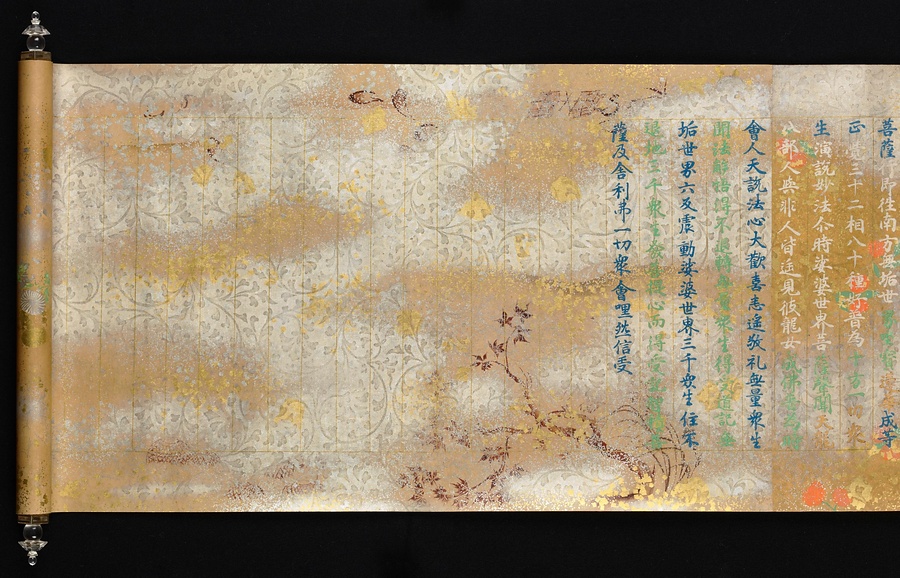 菩薩行即往南方無垢世界坐寶蓮華成等
正覺三十二相八十種好普為十方一切衆
生演說妙法尒時娑婆世界菩薩聲聞天龍
八部人與非人皆遥見彼龍女成佛普為時
會人天說法心大歡喜悉遥敬礼無量衆生
聞法解悟得不退轉無量衆生得受道記無
垢世界六反震動娑婆世界三千衆生住不
退地三千衆生發菩提心而得受記智積菩
薩及舍利弗一切衆會嘿然信受